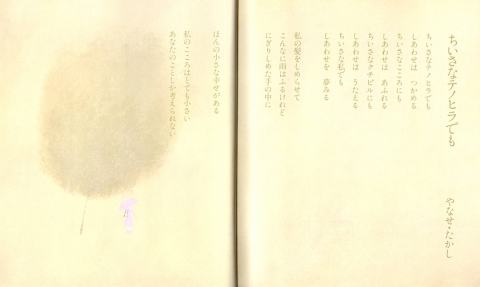 ちいさなテノヒラでも
やなせ・たかし
ちいさなテノヒラでも
しあわせは つかめる
ちいさなこころにも
しあわせは あふれる
ちいさなクチビルにも
しあわせは うたえる
ちいさな私でも
しあわせを 夢みる
私の髪をしめらせて
こんなに雨はふるけれど
にぎりしめた手の中に
ほんの小さな幸せがある
私のこころはとても小さい
あなたのことしか考えられない